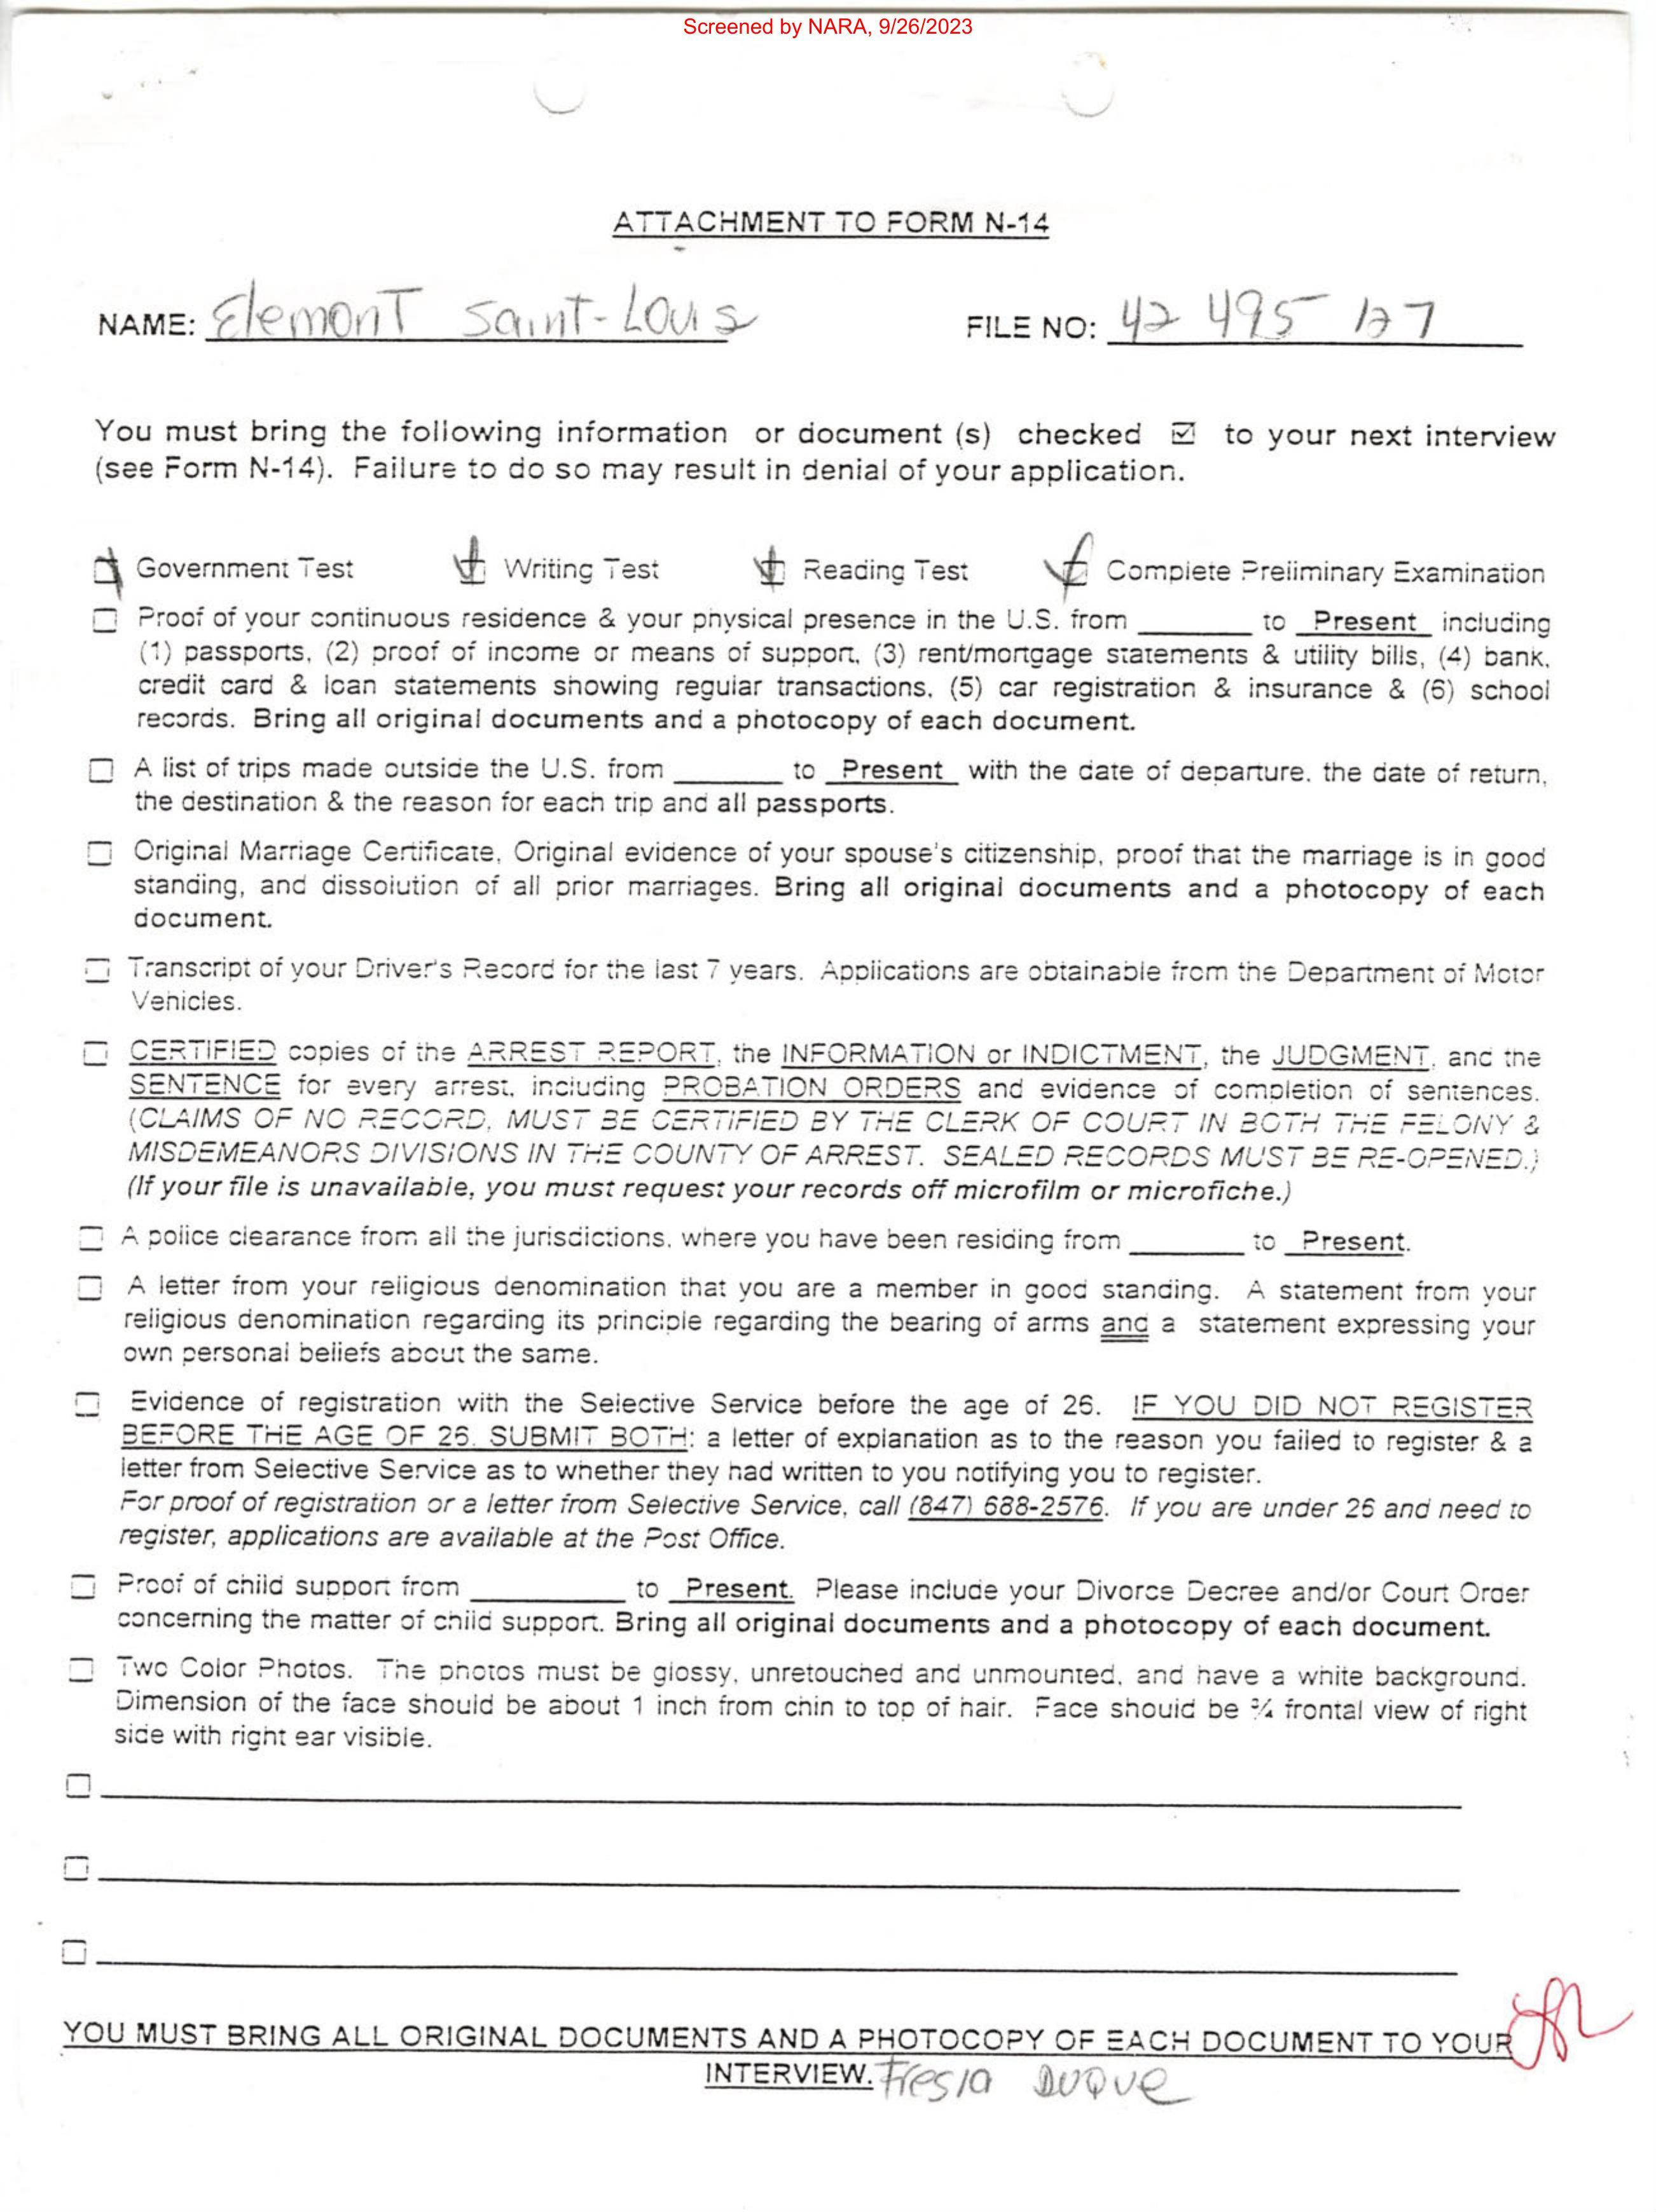 Screened by NARA, 9/26/2023
ATTACHMENT TO FORM N-14
NAME: Elemont Saint-Louis FILE NO: 42 495 127
You must bring the following information or document (s) checked ☑ to your next interview
(see Form N-14). Failure to do so may result in denial of your application.
☑ Government Test ☑ Writing Test ☑ Reading Test ☑ Complete Preliminary Examination
☐ Proof of your continuous residence & your physical presence in the U.S. from ________ to Present including
(1) passports, (2) proof of income or means of support, (3) rent/mortgage statements & utility bills, (4) bank,
credit card & loan statements showing regular transactions, (5) car registration & insurance & (6) school
records. Bring all original documents and a photocopy of each document.
☐ A list of trips made outside the U.S. from ________ to Present with the date of departure, the date of return,
the destination & the reason for each trip and all passports.
☐ Original Marriage Certificate, Original evidence of your spouse's citizenship, proof that the marriage is in good
standing, and dissolution of all prior marriages. Bring all original documents and a photocopy of each
document.
☐ Transcript of your Driver's Record for the last 7 years. Applications are obtainable from the Department of Motor
Vehicles.
☐ CERTIFIED copies of the ARREST REPORT, the INFORMATION or INDICTMENT, the JUDGMENT, and the
SENTENCE for every arrest, including PROBATION ORDERS and evidence of completion of sentences.
(CLAIMS OF NO RECORD, MUST BE CERTIFIED BY THE CLERK OF COURT IN BOTH THE FELONY &
MISDEMEANORS DIVISIONS IN THE COUNTY OF ARREST. SEALED RECORDS MUST BE RE-OPENED.)
(If your file is unavailable, you must request your records off microfilm or microfiche.)
☐ A police clearance from all the jurisdictions, where you have been residing from ________ to Present.
☐ A letter from your religious denomination that you are a member in good standing. A statement from your
religious denomination regarding its principle regarding the bearing of arms and a statement expressing your
own personal beliefs about the same.
☐ Evidence of registration with the Selective Service before the age of 26. IF YOU DID NOT REGISTER
BEFORE THE AGE OF 26, SUBMIT BOTH: a letter of explanation as to the reason you failed to register & a
letter from Selective Service as to whether they had written to you notifying you to register.
For proof of registration or a letter from Selective Service, call (847) 688-2576. If you are under 26 and need to
register, applications are available at the Post Office.
☐ Proof of child support from ________ to Present. Please include your Divorce Decree and/or Court Order
concerning the matter of child support. Bring all original documents and a photocopy of each document.
☐ Two Color Photos. The photos must be glossy, unretouched and unmounted, and have a white background.
Dimension of the face should be about 1 inch from chin to top of hair. Face should be ¾ frontal view of right
side with right ear visible.
☐ ________
☐ ________
☐ ________
YOU MUST BRING ALL ORIGINAL DOCUMENTS AND A PHOTOCOPY OF EACH DOCUMENT TO YOUR
INTERVIEW. Fresia Duque